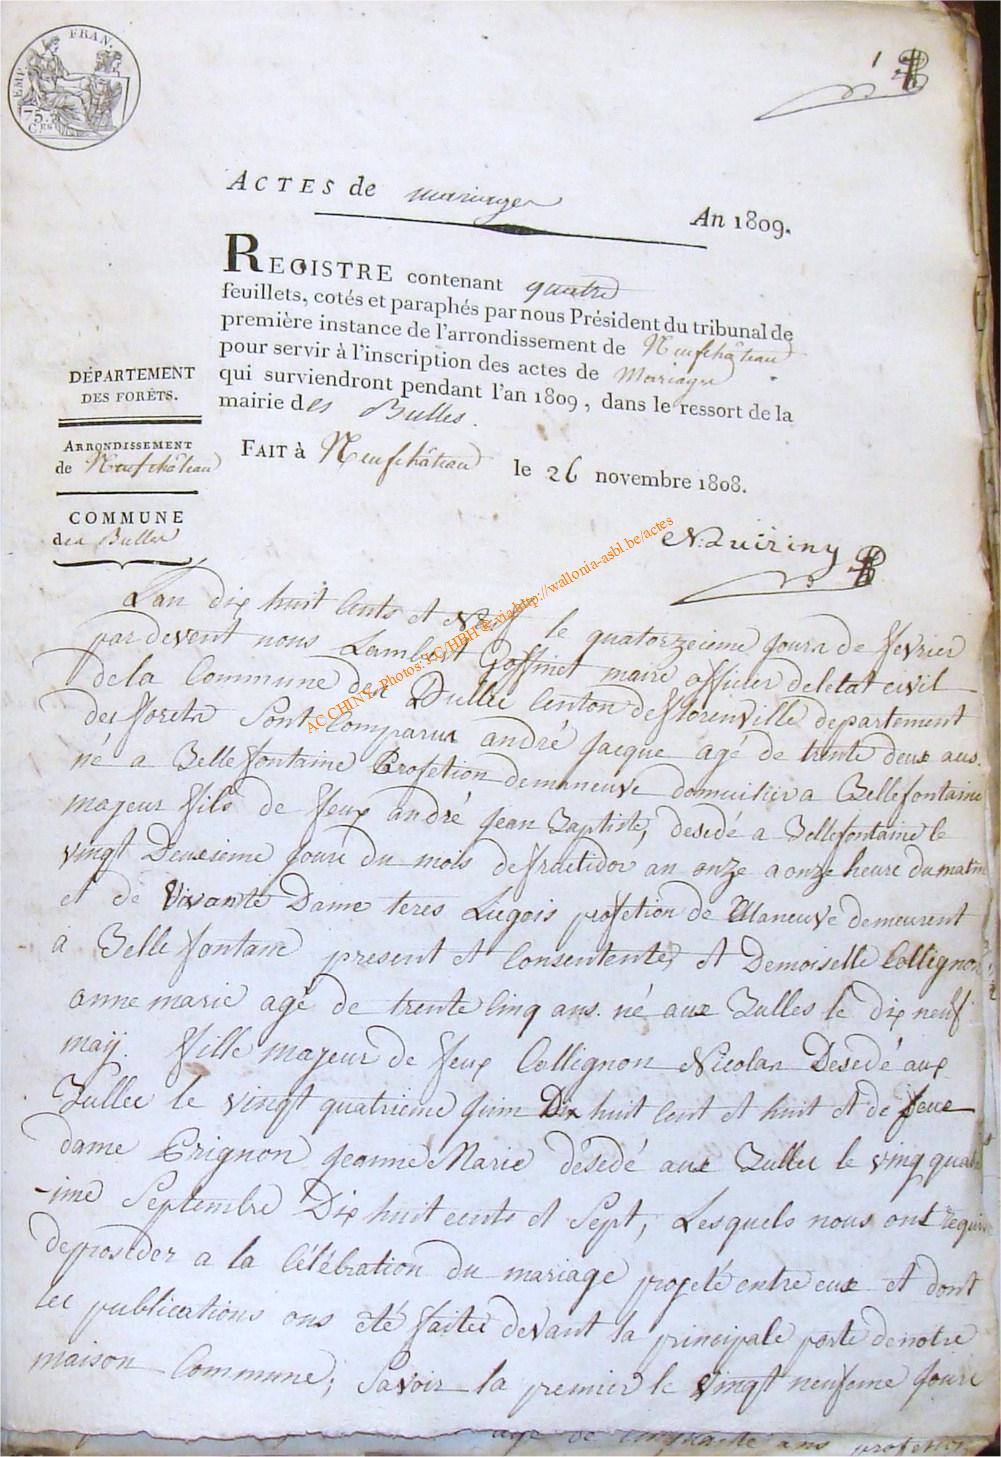 EMP. FRAN.
75.
CES
1
ACTES de mariages
An 1809.
REGISTRE contenant quatre
feuillets, cotés et paraphés par nous Président du tribunal de
première instance de l'arrondissement de Neufchâteau
pour servir à l'inscription des actes de Mariages
qui surviendront pendant l'an 1809, dans le ressort de la
mairie des Bulles.
FAIT à Neufchâteau le 26 novembre 1808.
DÉPARTEMENT
DES FORÊTS.
ARRONDISSEMENT
de Neufchâteau
COMMUNE
des Bulles
N. Quiriny
AC CHINY - Photos: FC/HBH © via http://wallonia-asbl.be/actes
Lan dix huit Cents et Neuf le quatorzeieme jours de fevrier
par devent nous Lambert Goffinet maire officier deletat civil
dela Commune des Bulles Centon deflorenville departement
des foretz Sont Comparus andré jacque agé de trente deux ans.
né a Bellefontaine Profetion demaneuve domicilier a Bellefontaine
majeur fils de feux andré jean Baptiste, desedé a Bellefontaine le
vingt Deuxieme jours du mois defrutidor an onze a onze heure du matin
et de Vivante Dame teres Liegois profetion de Maneuve demeurent
a Belle fontaine present et Consentente, et Demoiselle Collignon
anne marie agé de trente Cinq ans. né aux Bulles le dix neuf
maÿ. fille majeur de feux Collignon Nicolas Desedé aux
Bulles le vingt quatrieme juin Dix huit Cent et huit et de feue
dame Prignon jeanne Marie desedé aux Bulles le ving quatr
-ime Septembre Dix huit cents et Sept, Lesquels nous ont requi
deproseder a la Célébration du mariage projeté entre eux et dont
les publications ons eté faites devant la principale porte denotre
maison Commune; Savoir la premier le vingt neufieme jours
age de cinquante ans profession